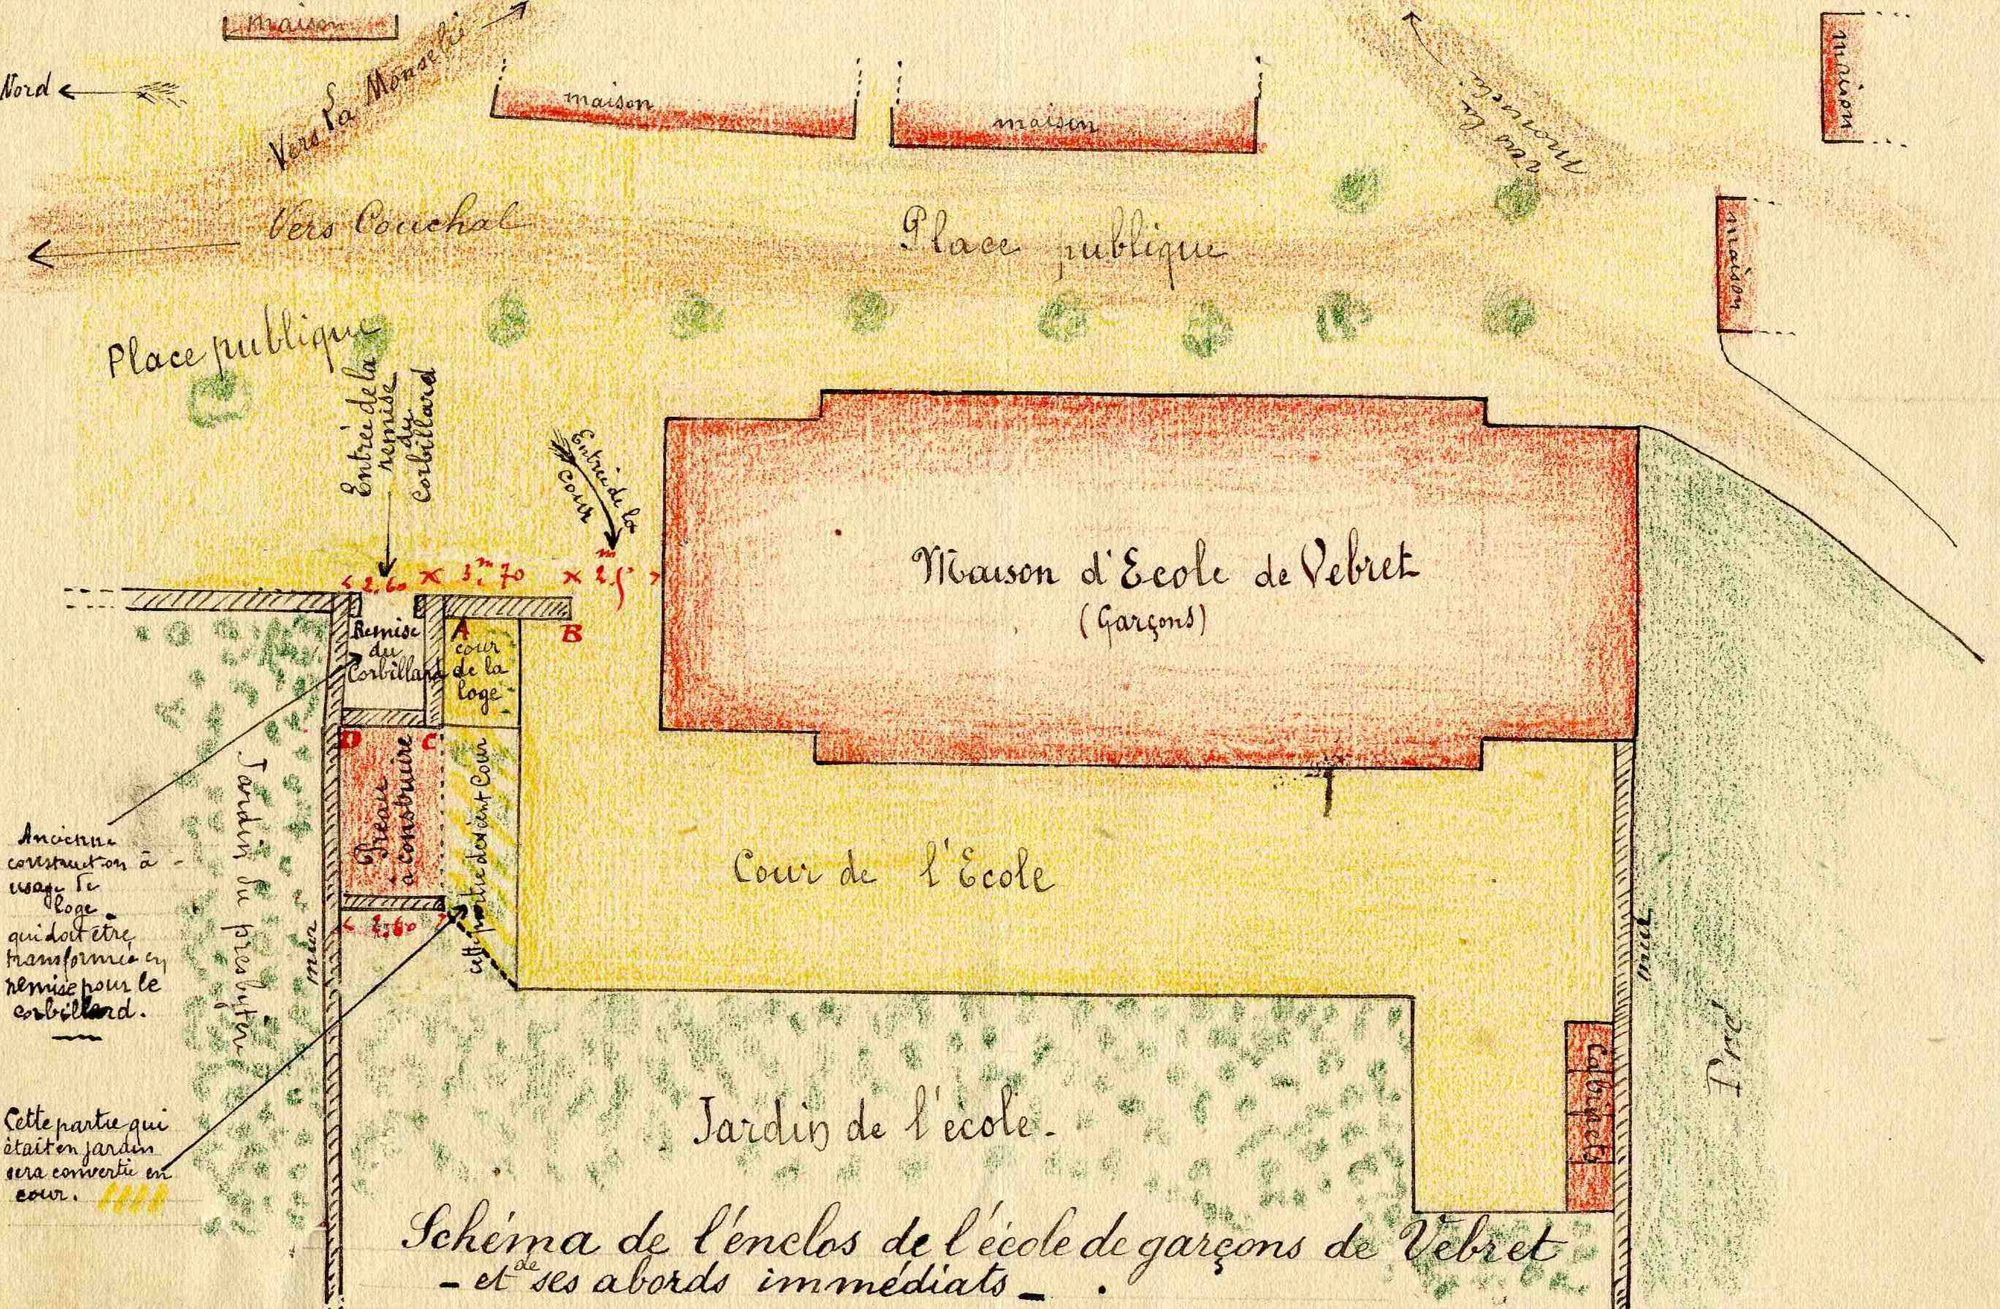 maison
Nord
Vers
la Monselie
maison
maison
vers la
maison
Vers Couchal
Place publique
maison
Place publique
Entrée de la
remise
du
Corbillard
Entrée de la
cour
2.60 × 3.m70 × 2m5
Maison d'Ecole de Vebret
(Garçons)
Remise
du
Corbillard
A
B
cour
de la
loge
D
C
Préau
à construire
cette partie devient Cour
2.60
Cour de l'Ecole
Jardin du presbytère
mur
mur
Pré
Cabinets
Ancienne
construction à
usage de
loge
qui doit être
transformée en
remise pour le
corbillard.
Cette partie qui
était en jardin
sera convertie en
cour.
Jardin de l'école.
Schéma de l'énclos de l'école de garçons de Vebret
- et de ses abords immédiats -